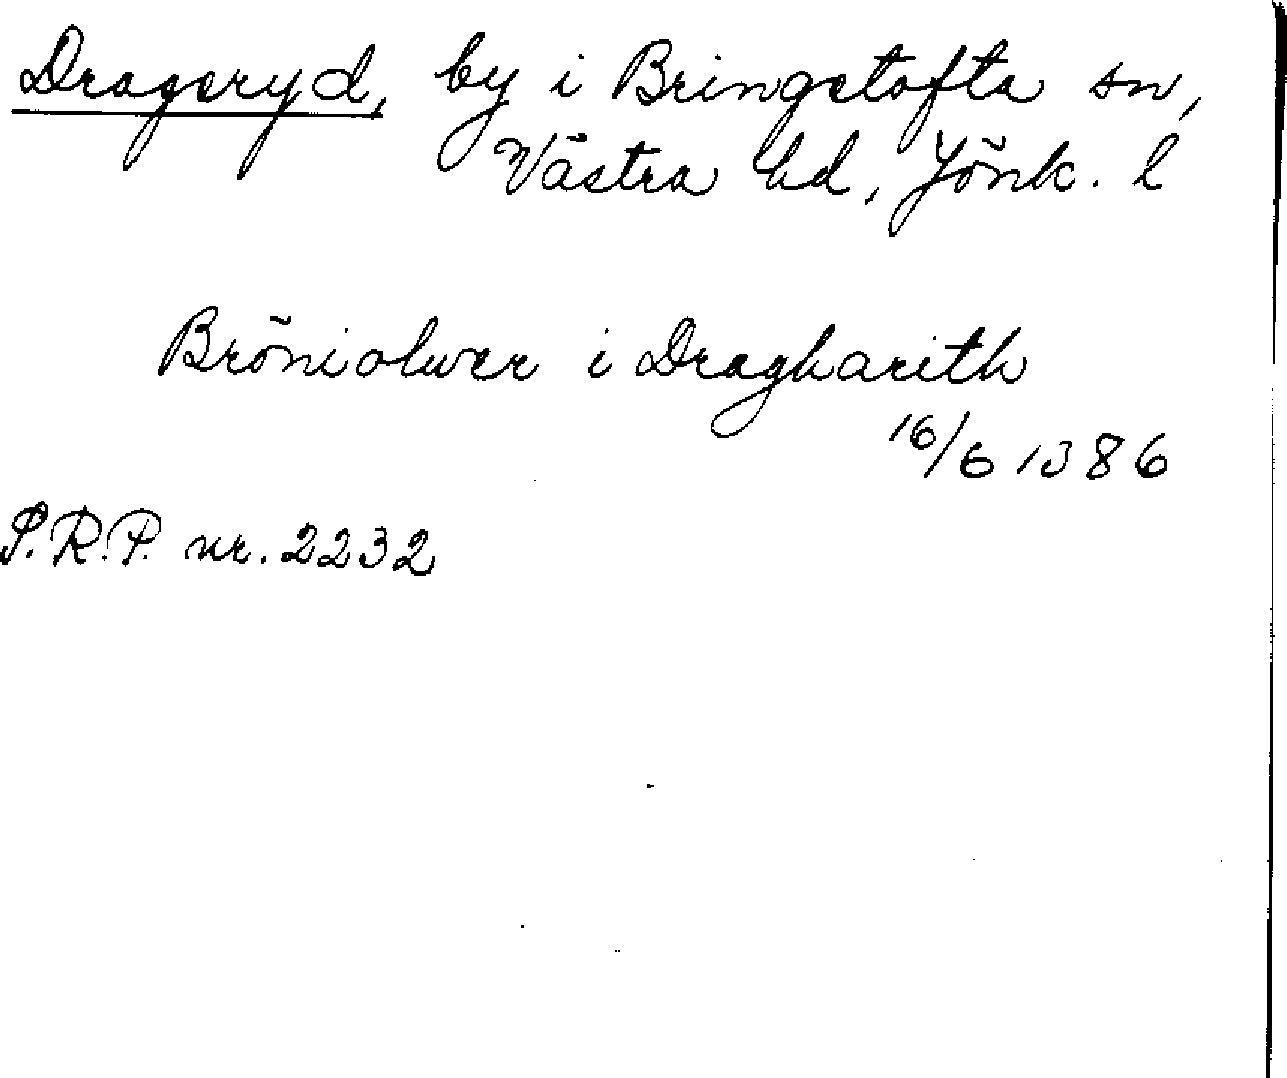 Drageryd, by i Bringetofta sn,
Västra hd, Jönk. l
Bröniolwer i Dragharith
16/6 1386
S.R.P. nr. 2232